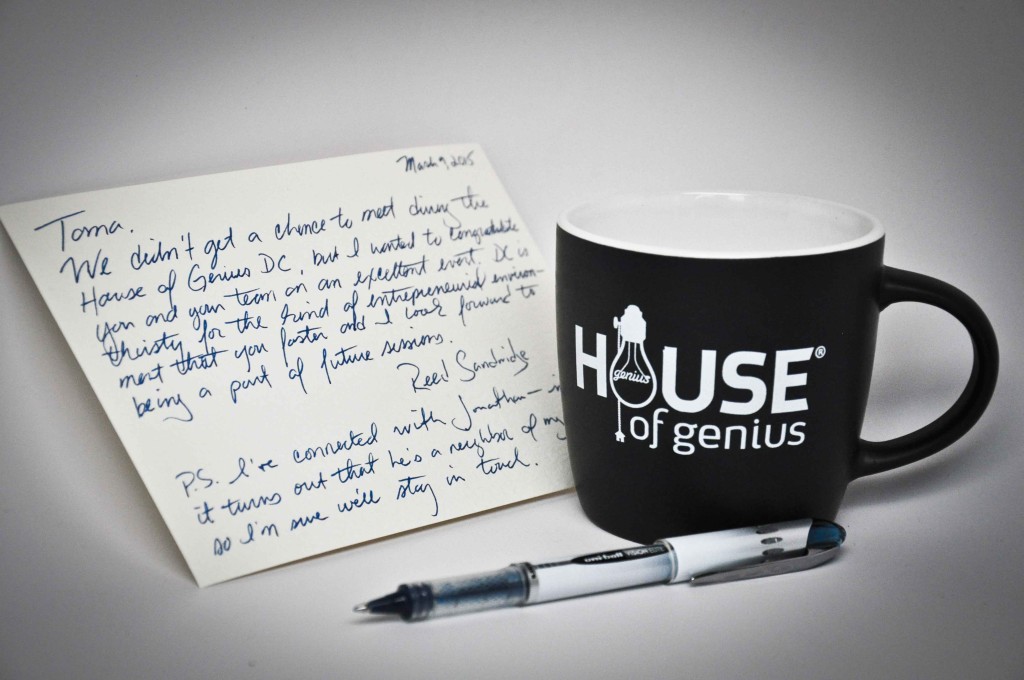 March 9, 2015
Toma.
We didn't get a chance to meet during the
House of Genius DC, but I wanted to congratulate
you and your team on an excellent event. DC is
thirsty for the kind of entrepreneurial environ-
ment that you foster and I look forward to
being a part of future sessions.
Reed Sandridge
P.S. I've connected with Jonathan—
it turns out that he's a neighbor of my
so I'm sure we'll stay in touch.
HOUSE®
genius
of genius
uni-ball VISION ELITE